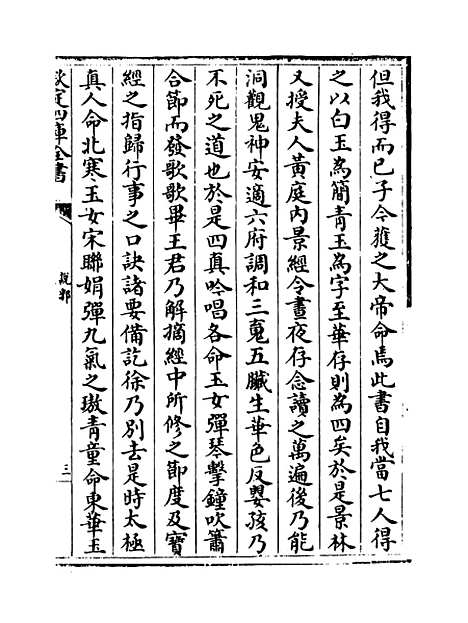 但我得而已子今獲之大帝命焉此書自我當七人得
之以白玉為簡青玉為字至華存則為四矣於是景林
又授夫人黃庭內景經令晝夜存念讀之萬遍後乃能
洞觀鬼神安適六府調和三魂五臟生華色反嬰孩乃
不死之道也於是四真吟唱各命玉女彈琴擊鐘吹簫
合節而發歌歌畢王君乃解摘經中所修之節度及寶
經之指歸行事之口訣諸要備訖徐乃別去是時太極
真人命北寒玉女宋聯娟彈九氣之璈青童命東華玉
欽定四庫全書
說郛
三